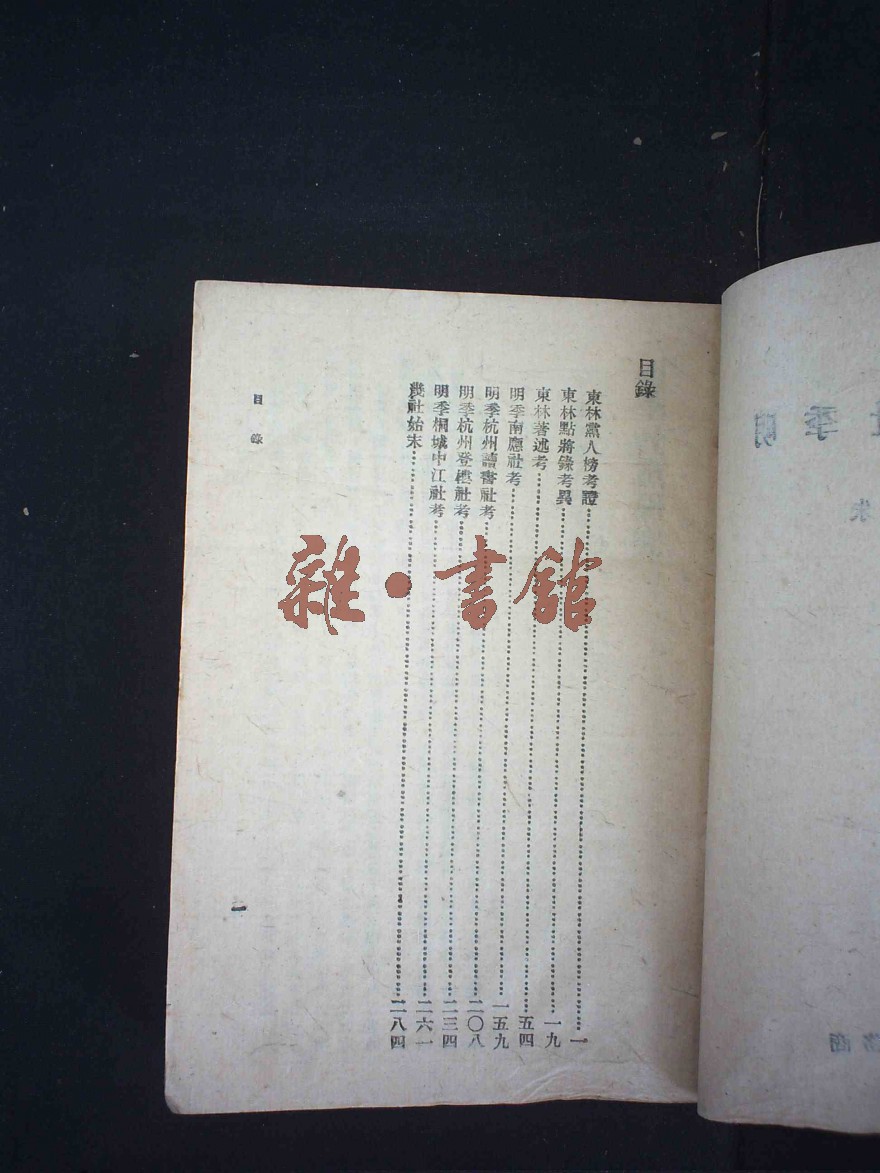 目錄
東林黨人榜考證 一
東林點將錄考異 一九
東林著述考 五四
明季南應社考 一五九
明季杭州讀書社考 二〇八
明季杭州登樓社考 二三四
明季桐城中江社考 二六一
幾社始末 二八四
目錄
一
雜·書館